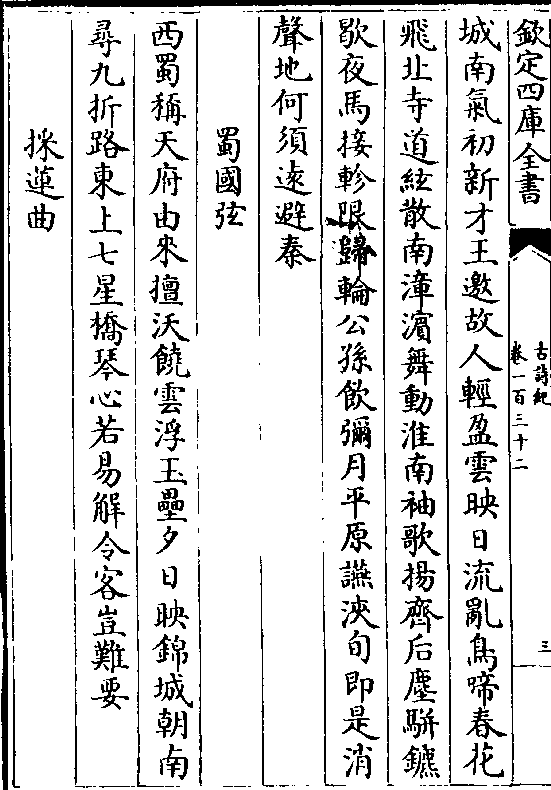 欽定四庫全書
古詩紀
卷一百三十二
三
城南氣初新才王邀故人輕盈雲映日流亂鳥啼春花
飛北寺道絃散南漳濱舞動淮南袖歌揚齊后塵駢鑣
歇夜馬接軫限歸輪公孫飲彌月平原讌浹旬即是消
聲地何須遠避秦
蜀國弦
西蜀稱天府由來擅沃饒雲浮玉壘夕日映錦城朝南
尋九折路東上七星橋琴心若易解令客豈難要
採蓮曲